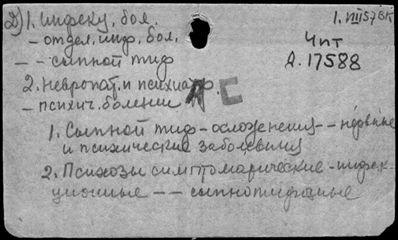 Д) 1. инфекц. бол.
1. VIII 57 БК
– отдел. инф. бол.
Чпт
– – сыпной тиф
А. 17588
2. невропат. и психиатр.
– психич. болезни
АС
1. Сыпной тиф – осложнения – – нервные
и психические заболевания
2. Психозы симптоматические – инфек-
ционные – – сыпнотифозные